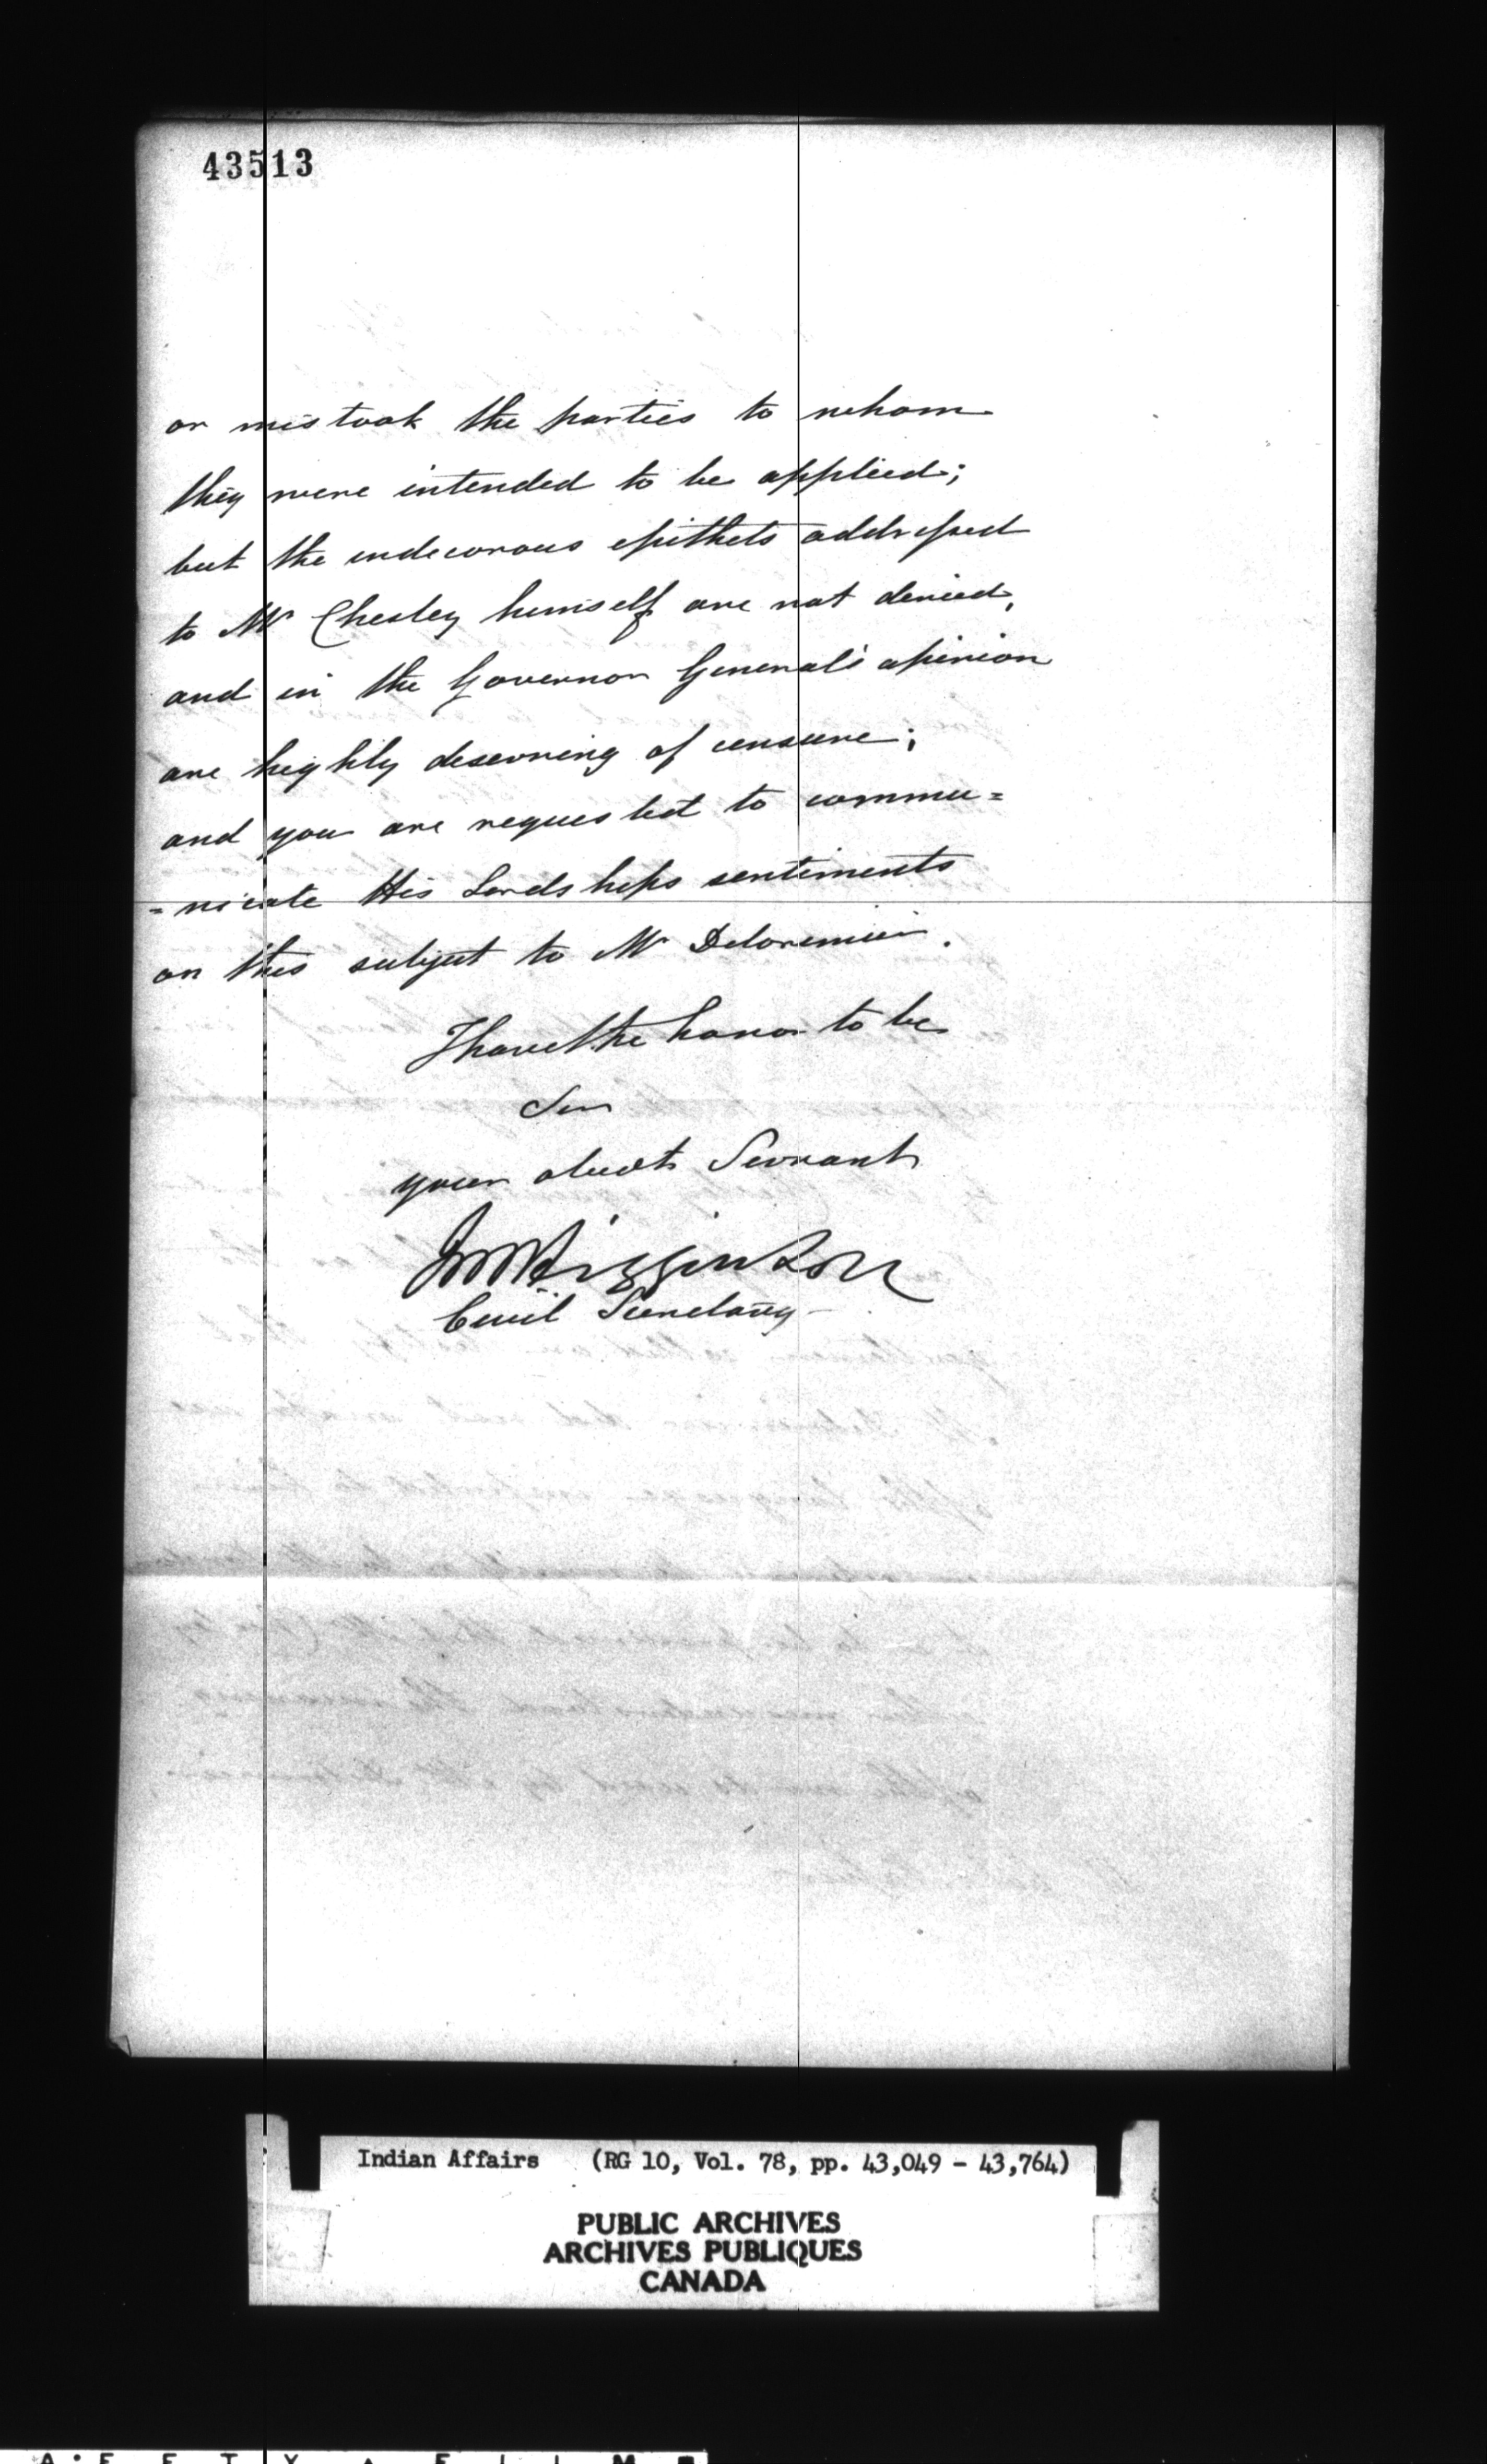 43513
or mistook the parties to whom
they were intended to be applied;
but the indecorous epithets addressed
to Mr Chesley himself are not denied,
and in the Governor General's opinion
are highly deserving of censure;
and you are requested to commu=
=nicate His Lordships sentiments
on this subject to Mr Delorimier.
I have the honor to be
Sir
your obedt Servant
JM Higginson
Civil Secretary
Indian Affairs (RG 10, Vol. 78, pp. 43,049 - 43,764)
PUBLIC ARCHIVES
ARCHIVES PUBLIQUES
CANADA